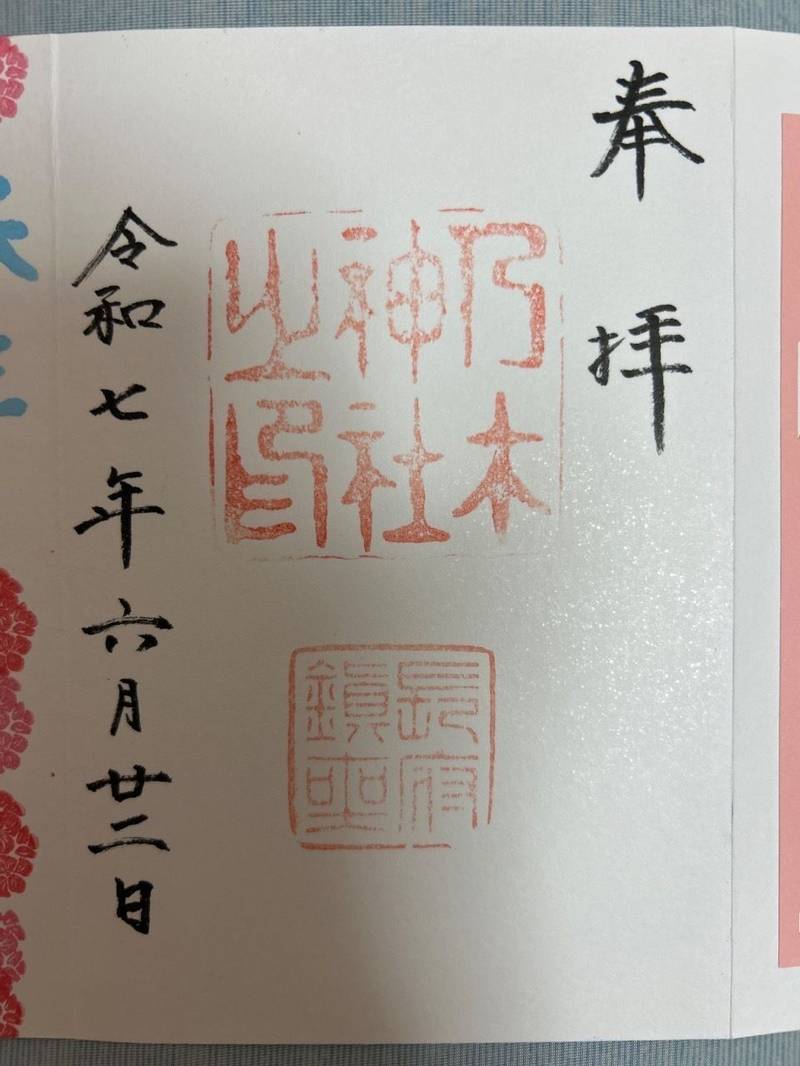 奉拝
乃木
神社
之印
長府
鎮座
令和七年六月廿二日